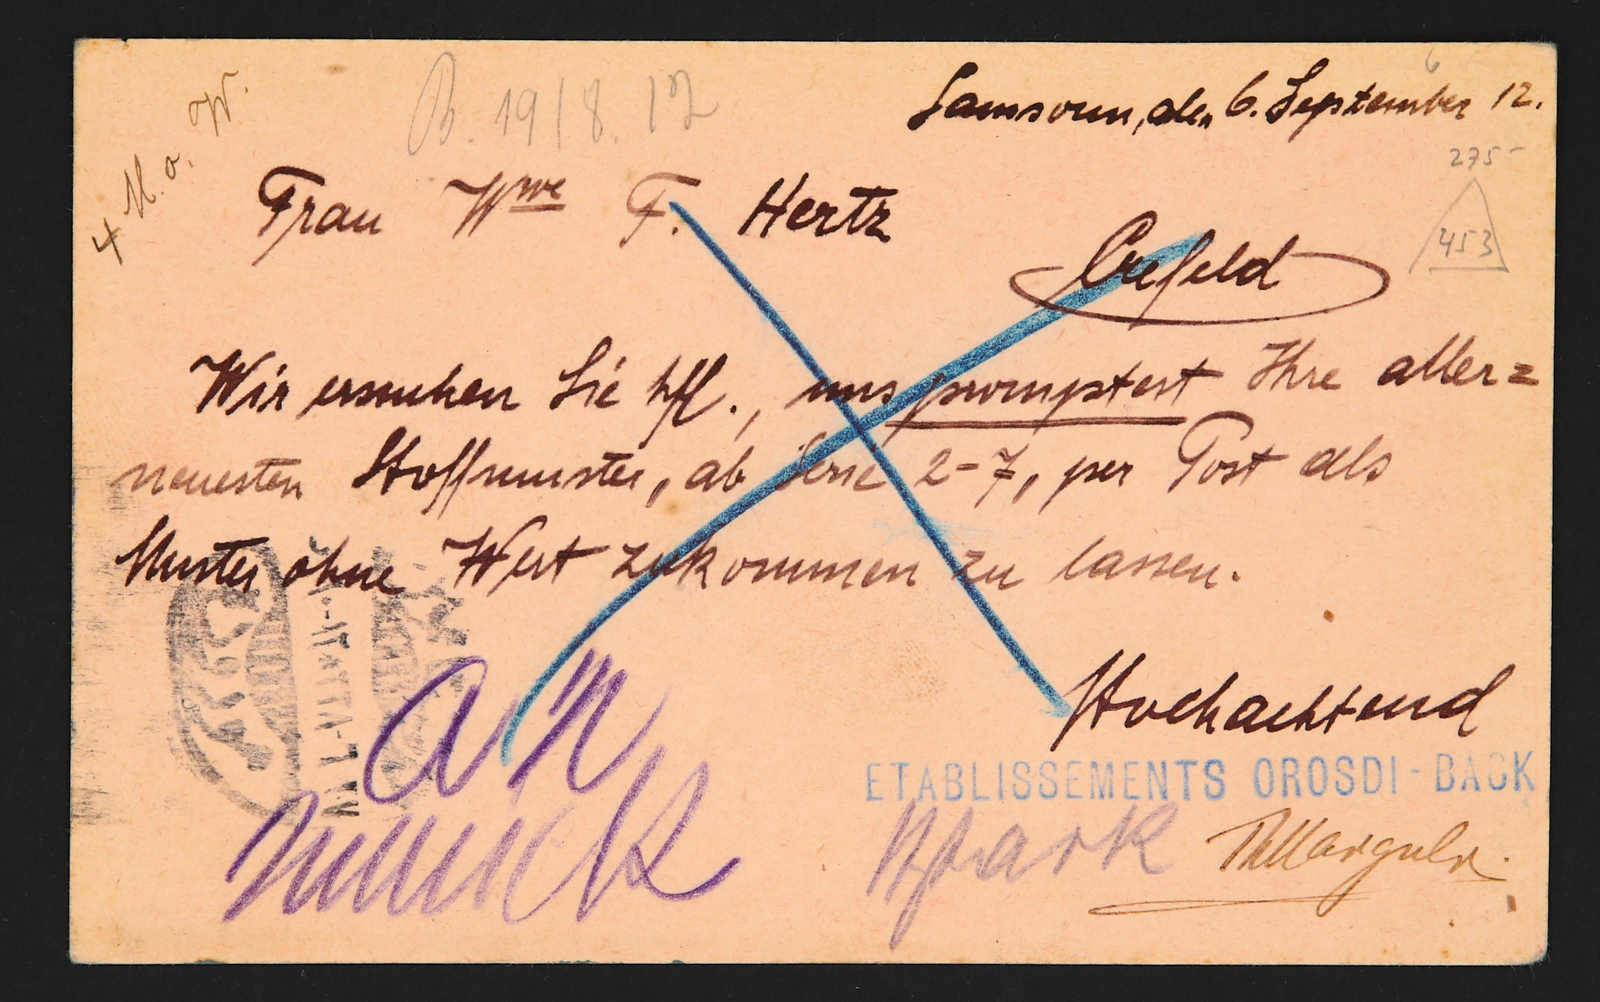 Samsoun, den 6. September 12.
4 M. o. W.
B. 19/8. 12
275-
453
Frau Wwe F. Hertz
Crefeld
Wir ersuchen Sie hfl., uns promptest Ihre aller=
neuesten Stoffmuster, ab Serie 2-7, per Post als
Muster ohne Wert zukommen zu lassen.
Hochachtend
ETABLISSEMENTS OROSDI-BACK
an